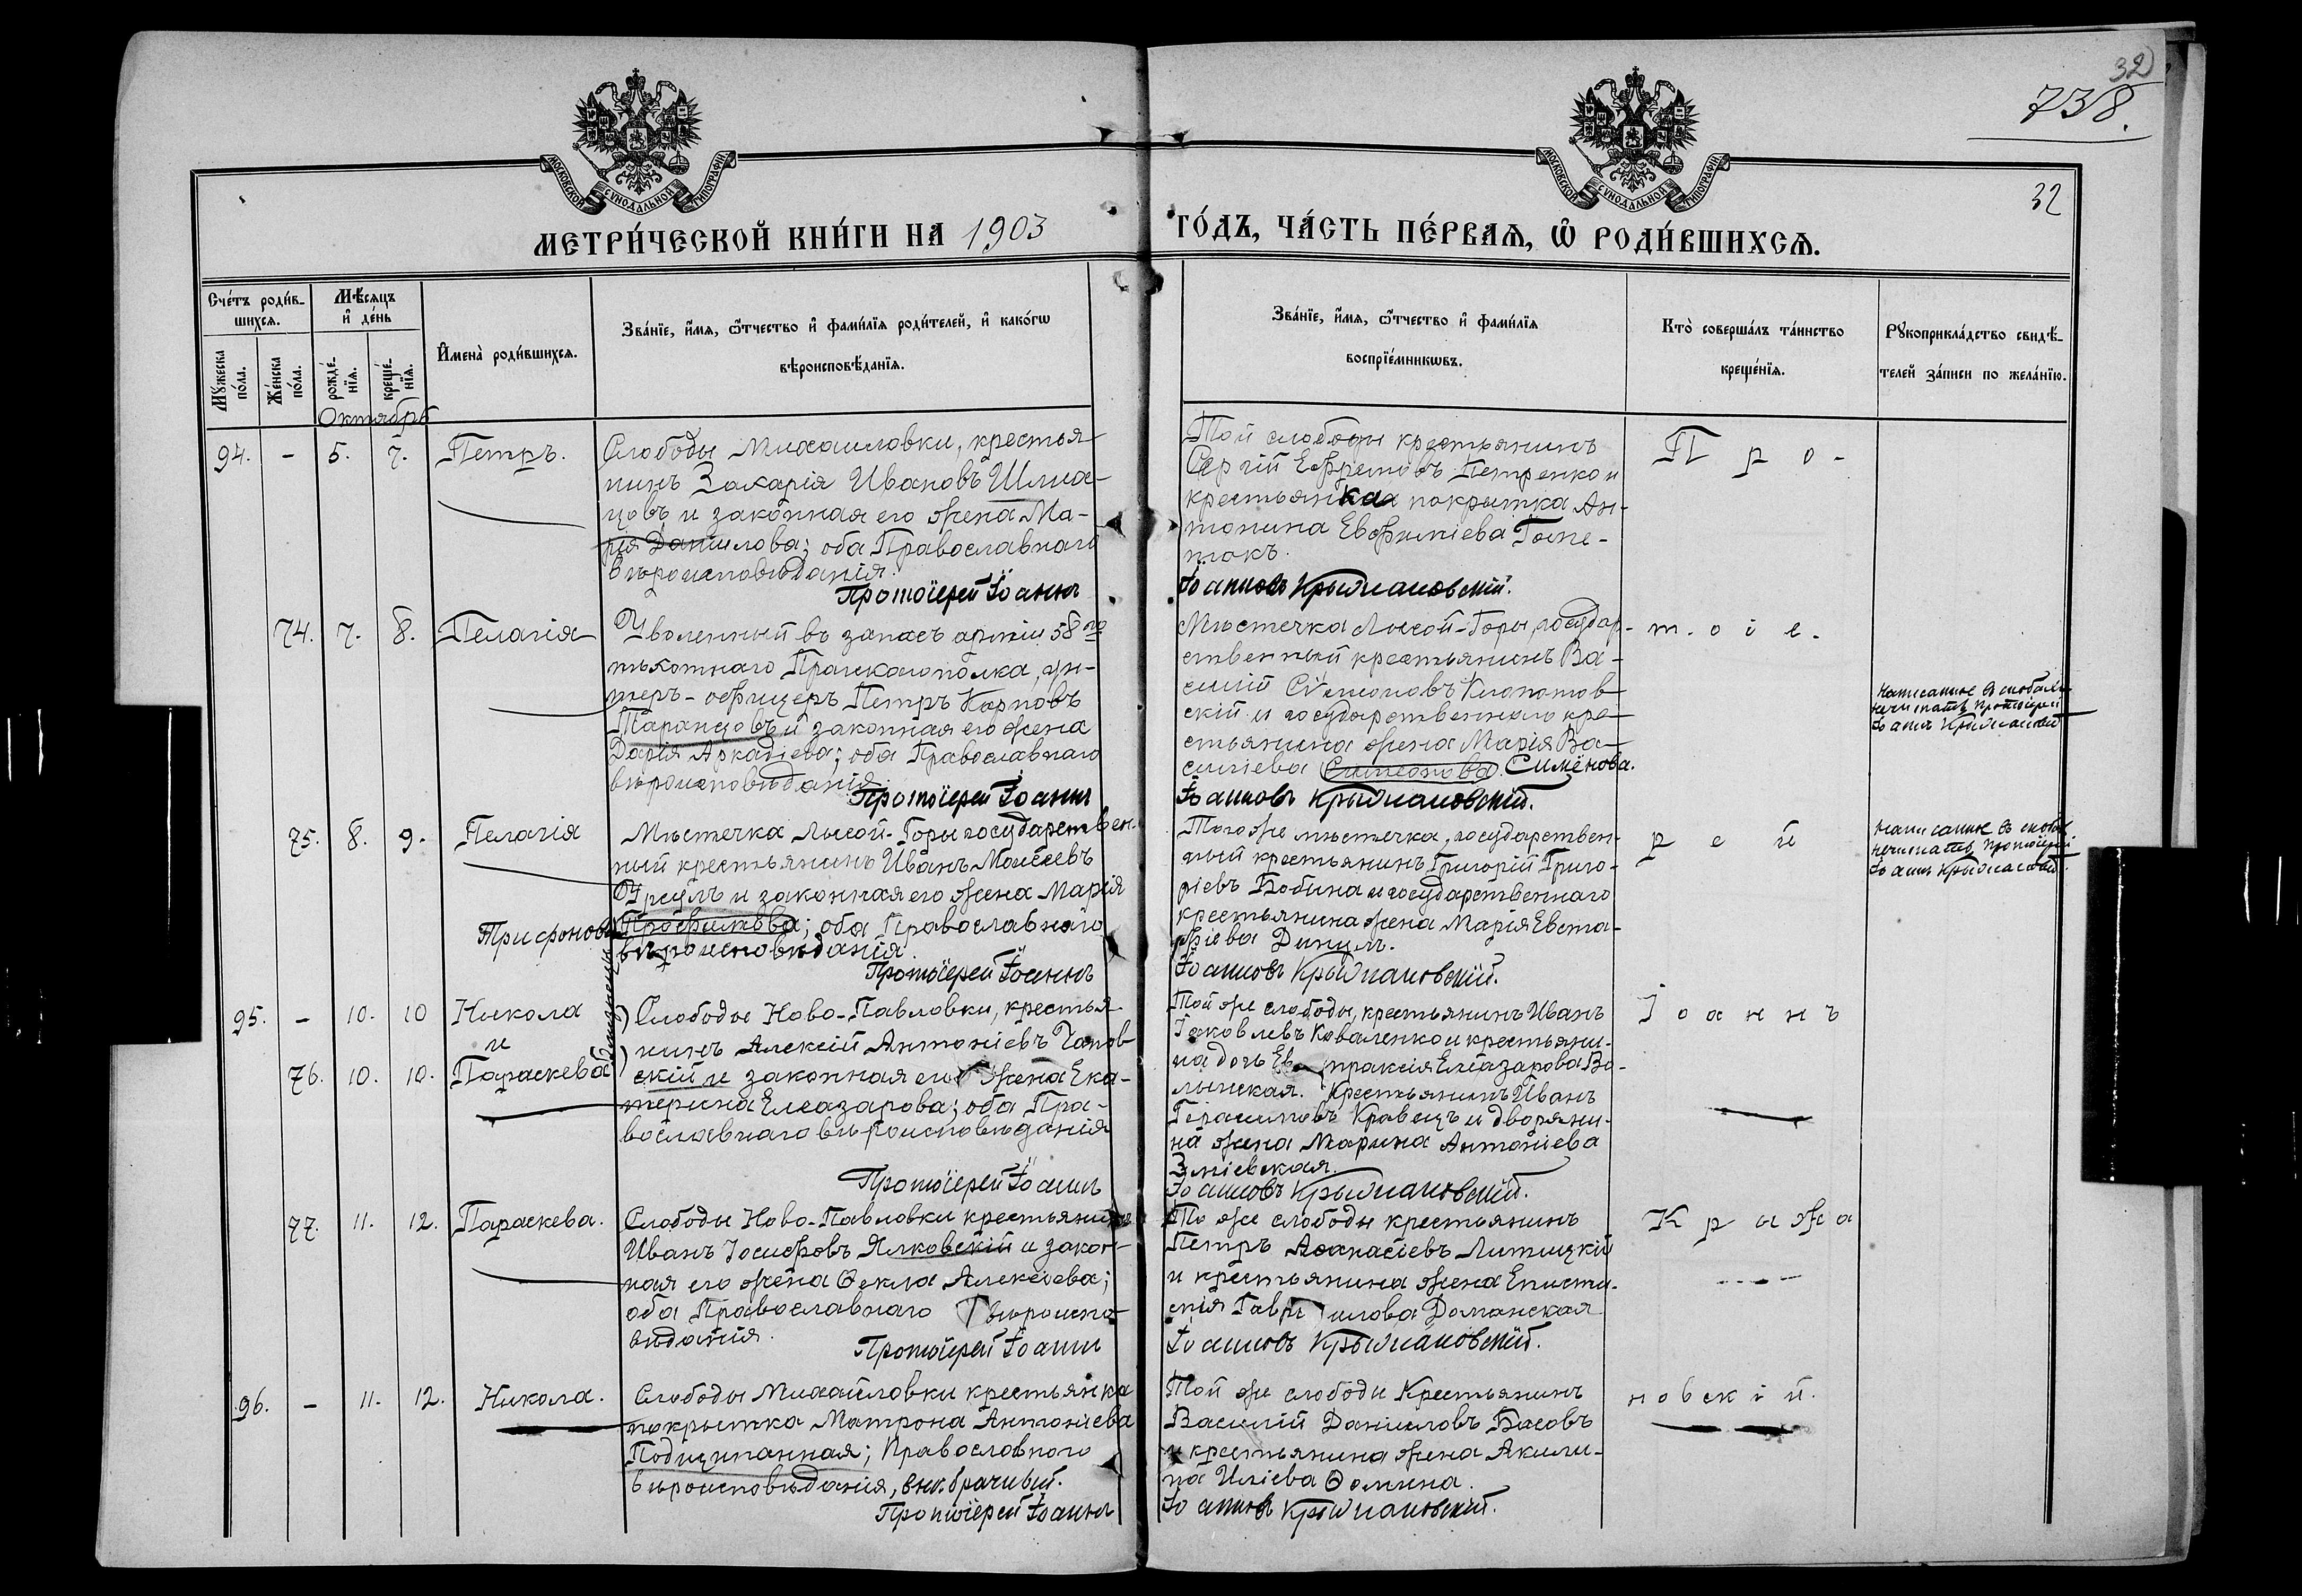 32
738.
МОСКОВСКОЙ СѴНОДАЛЬНОЙ ТИПОГРАФІИ
МОСКОВСКОЙ СѴНОДАЛЬНОЙ ТИПОГРАФІИ
32
МЕТРИ́ЧЕСКОЙ КНИ́ГИ НА 1903
ГО́ДЪ, ЧА́СТЬ ПЕ́РВАЯ, Ѡ РОДИ́ВШИХСЯ.
Сче́тъ роди́в-
шихся.
Мѣ́сяцъ
и де́нь
Мꙋ́жеска по́ла.
Же́нска по́ла.
рожде́-нїя.
креще́-нїя.
Имена̀ роди́вшихся.
Зва́нїе, и́мя, ѻ́тчество и фами́лїя роди́телей, и како́гѡ
вѣроисповѣ́данїя.
Зва́нїе, и́мя, ѻ́тчество и фами́лїя
воспрїе́мникѡвъ.
Кто̀ соверша́лъ та́инство
креще́нїя.
Рꙋкоприкла́дство свидѣ́-
телей за́писи по жела́нїю.
Октябрь
94. - 5. 7. Петръ.
Слободы Михаиловки, крестья-
нинъ Захарія Ивановъ
и законная его жена Ма-
рія Данилова; оба Православнаго
вѣроисповѣданія.
Протоіерей Іоаннъ
Той слободы крестьянинъ
Сергій Ефремовъ Петренко и
крестьянка покрытка Ан-
тонина Евфиміева
Іоанновъ Крыжановскій.
П р о -
74. 7. 8. Пелагія
Уволенный въ запасъ арміи 58го
пѣхотнаго Прагскаго полка, ун-
теръ-офицеръ Петръ Карповъ
Таранцовъ и законная его жена
Дарія Аркадіева; оба Православнаго
вѣроисповѣданія
Протоіерей Іоаннъ
Мѣстечка Лысой-Горы, государ-
ственный крестьянинъ Ва-
силій Сѵмеоновъ Клопотов-
скій и государственнаго кре-
стьянина жена Марія Ва-
силіева Симеонова. Сименова.
Іоанновъ Крыжановскій.
т. о і е.
Написанное въ скобахъ
нечитать Протоіерей
Іоаннъ Крыжановскій
75. 8. 9. Пелагія
Мѣстечка Лысой-Горы государствен-
ный крестьянинъ Иванъ Моисеевъ
Урсулъ и законная его жена Марія
Трифонова Трофимова; оба Православнаго
вѣроисповѣданія.
Протоіерей Іоаннъ
Тогоже мѣстечка, государствен-
ный крестьянинъ Григорій Григо-
ріевъ Бобина и государственнаго
крестьянина жена Марія Евста-
фіева
Іоанновъ Крыжановскій.
р е й
Написанное въ скобах
нечитать Протоіерей
Іоаннъ Крыжановскій
95. - 10. 10 Никола
и
76. 10. 10. Параскева
близнецы
Слободы Ново-Павловки, крестья-
нинъ Алексій Антоніевъ Чапов-
скій и законная его жена Ека-
терина Елеазарова; оба Пра-
вославнаго вѣроисповѣданія
Протоіерей Іоаннъ
Той же слободы, крестьянинъ Иванъ
Іаковлевъ Коваленко и крестьяни-
на дочь Ев праксія Елеазарова Во-
лынская. Крестьянинъ Иванъ
Герасимовъ Кравецъ и дворяни-
на жена Марина Антоніева
Зміевская.
Іоанновъ Крыжановскій.
І о а н н ъ
77. 11. 12. Параскева.
Слободы Ново-Павловки крестьянинъ
Иванъ Іосифовъ Ялковскій и закон-
ная его жена Ѳекла Алексіева;
оба Православнаго вѣроиспо-
вѣданія.
Протоіерей Іоаннъ
То же слободы крестьянинъ
Петръ Аѳанасіевъ Литицкій
и крестьянина жена Еписти-
мія Гавр иилова Доманская
Іоанновъ Крыжановскій.
К р ы ж а
96. - 11. 12. Никола.
Слободы Михайловки крестьянка
покрытка Матрона Антоніева
Подщипанная; Православного
вѣроисповѣданія, внѣбрачный.
Протоіерей Іоаннъ
Той же слободы Крестьянинъ
Василій Даниловъ Басовъ
и крестьянина жена Акили-
на Иліева Ѳомина.
Іоанновъ Крыжановскій.
н о в с к і й.